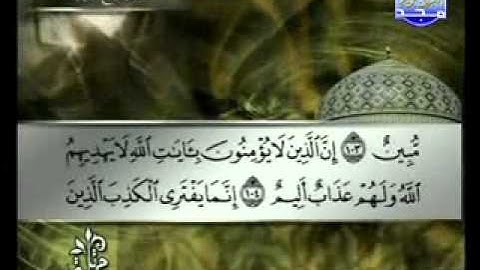 مُّبِينٌ ١٠٣ إِنَّ ٱلَّذِينَ لَا يُؤْمِنُونَ بِـَٔايَٰتِ ٱللَّهِ لَا يَهْدِيهِمُ
ٱللَّهُ وَلَهُمْ عَذَابٌ أَلِيمٌ ١٠٤ إِنَّمَا يَفْتَرِى ٱلْكَذِبَ ٱلَّذِينَ